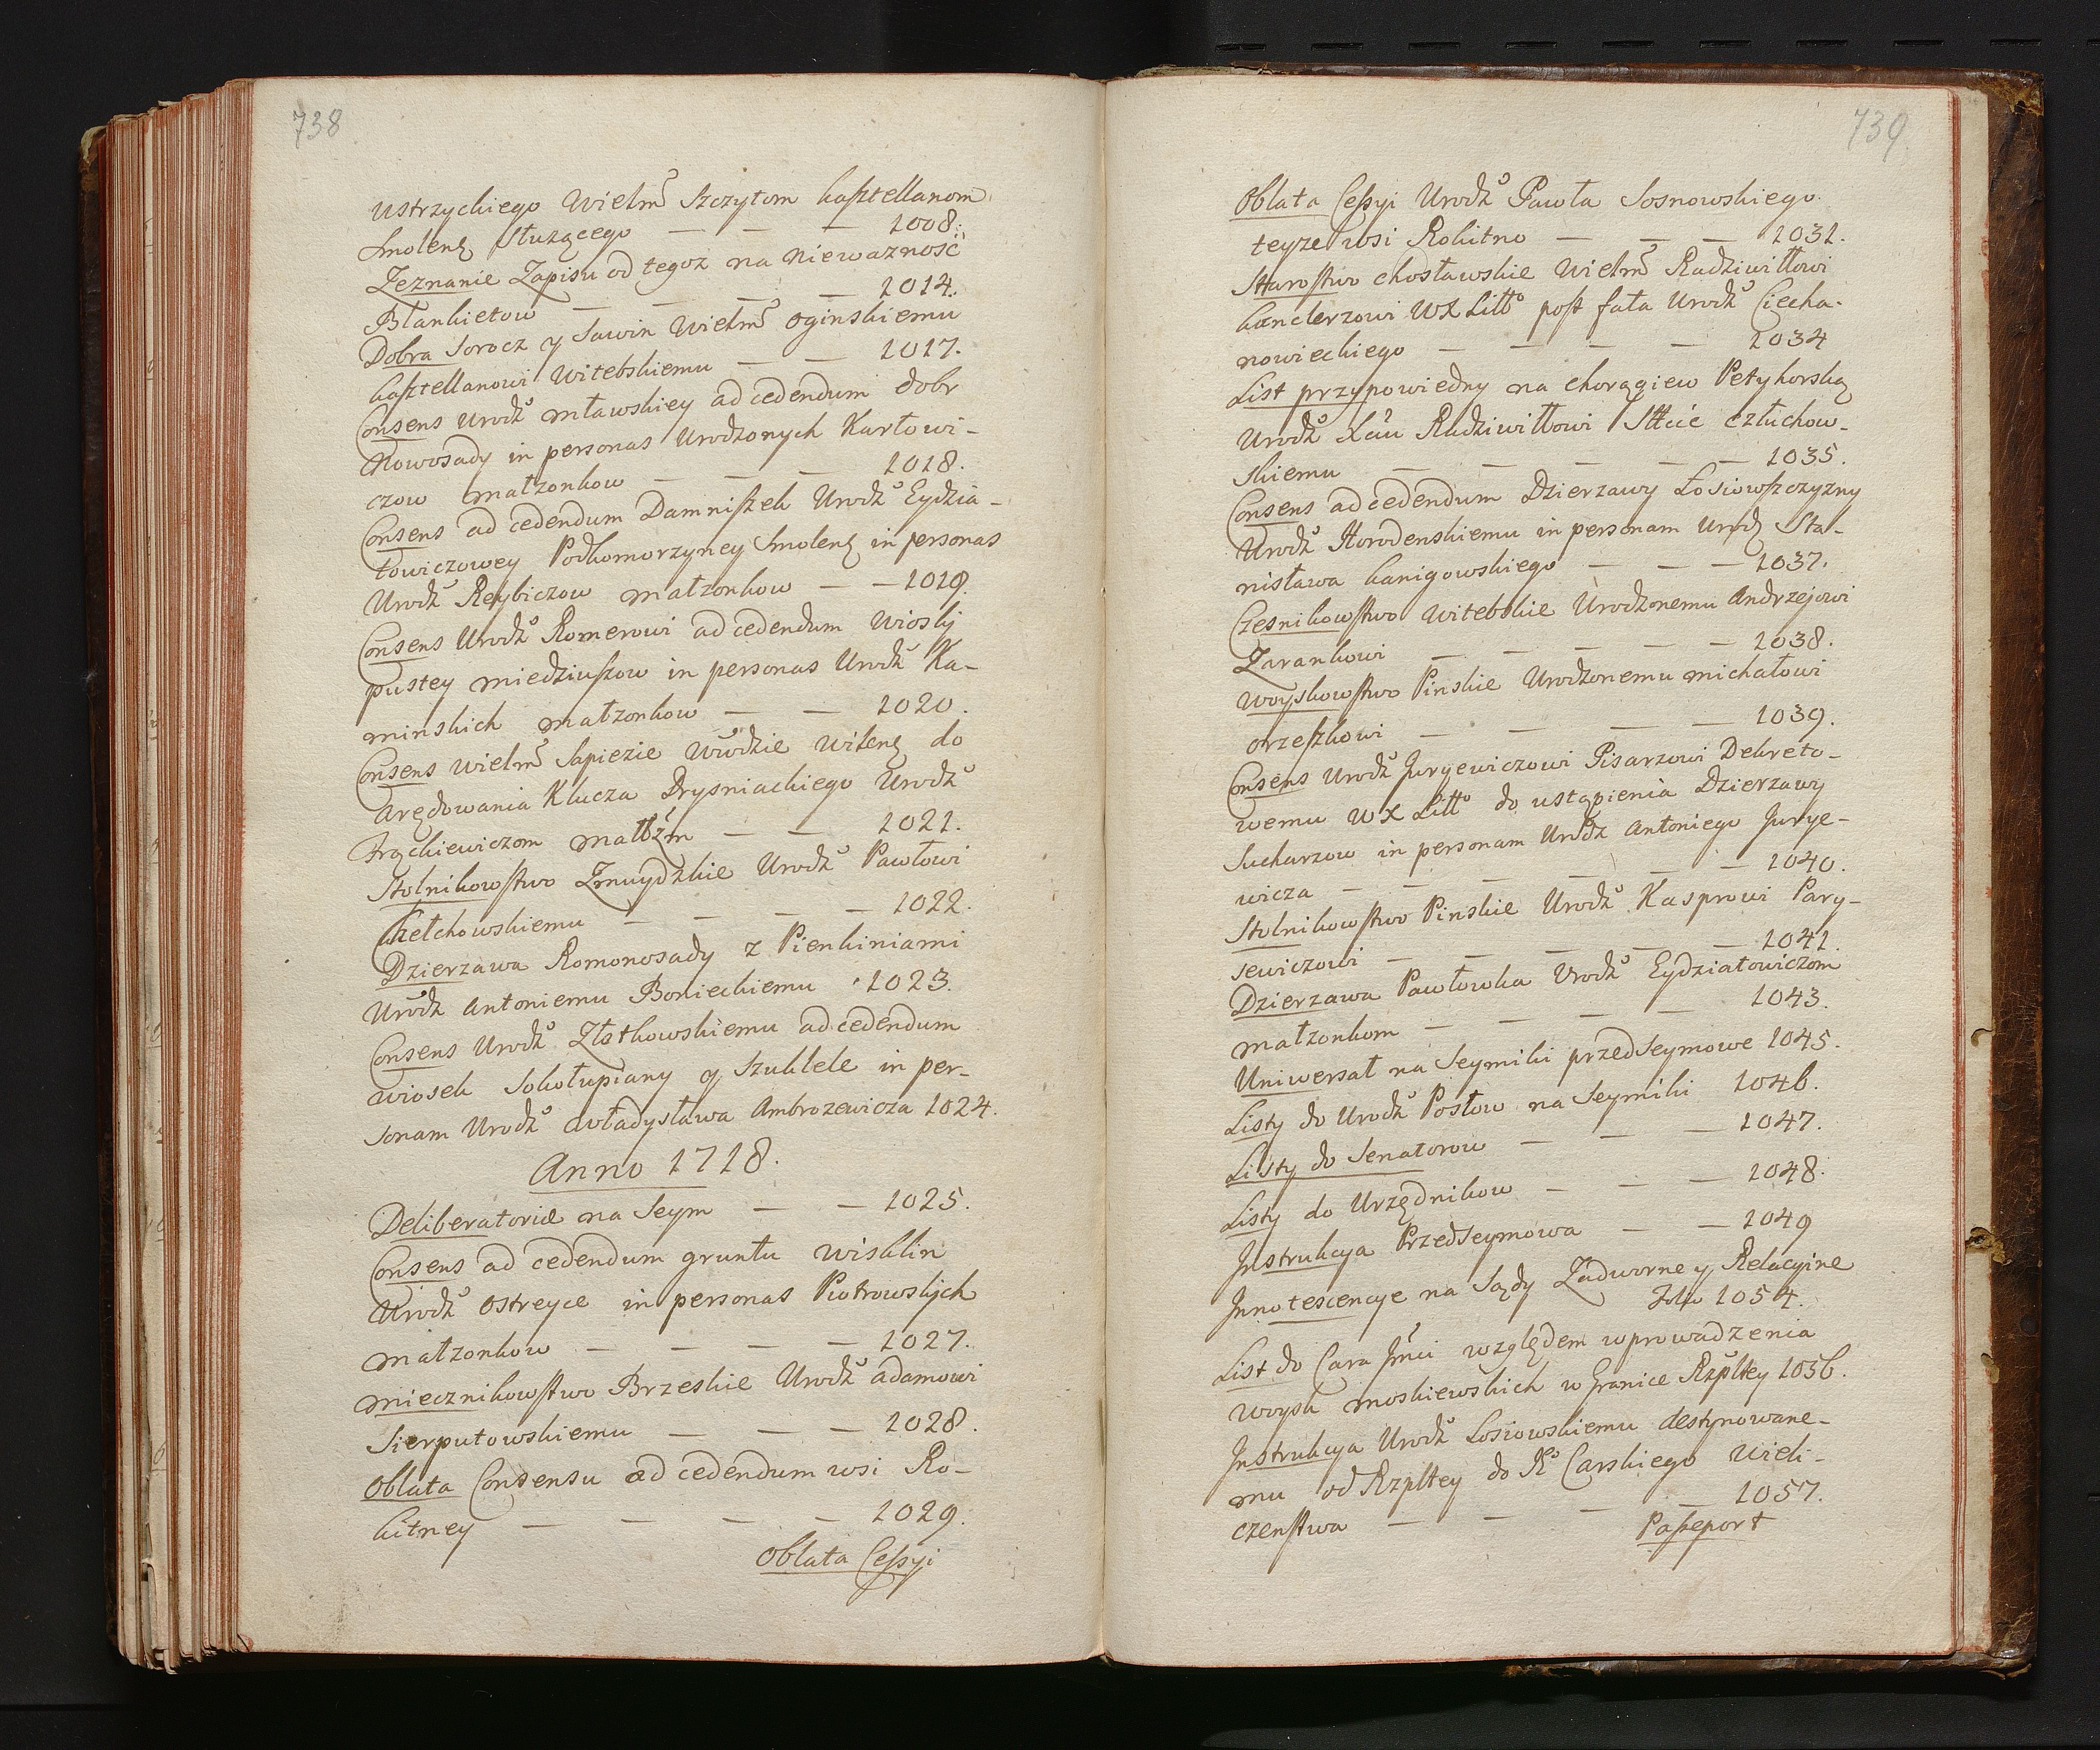 738
Ustrzyckiego Wielmº Szczytom kasztellanom
Smolenȩ Służącego — — — 1008.
Zeznanie Zapisu od tegoż na Nieważność
Blankietow — — — — 1014.
Dobra Sorocz y Sawin Wielmº Oginskiemu
kasztellanowi Witebskiemu — — 1017.
Consens Urodzº Mławskiey ad cedendum dobr
Nowosady in personas Urodzonych Karłowi-
czow małzonkow — — — 1018.
Consens ad cedendum Damniszek Urodzº Eydzia-
towiczowey Podkomorzyney Smolenȩ in personas
Urodzº Reybiczow małzonkow — — 1019.
Consens Urodzº Romerowi ad cedendum Wioski
pustey Miedziuszow in personas Urodzº Ka-
minskich małzonkow — — 1020.
Consens Wielmº Sapiezie Wwdzie Wilenȩ do
Arędowania Klucza Drysniackiego Urodzº
Frąckiewiczom małżm — — 1021.
Stolnikowstwo Zmuydzkie Urodzº Pawłowi
Chełchowskiemu — — — — 1022.
Dzierzawa Romonosady z Pienkiniami
Urodz Antoniemu Bonieckiemu 1023.
Consens Urodzº Złotkowskiemu ad cedendum
wiosek Sokołupiany y Szuklele in per-
sonam Urodzº Władysława Ambrozewicza 1024.
Anno 1718.
Deliberatoriæ na Seym — — 1025.
Consens ad cedendum gruntu Wisklin
Urodzº Ostreyce in personas Piotrowskych
małzonkow — — — — 1027.
Miecznikowstwo Brzeskie Urodzº Adamowi
Sierputowskiemu — — — 1028.
Oblata Consensu ad cedendum wsi Ro-
kitney — — — — 1029.
Oblata Cessyi
739
Oblata Cessyi Urodzº Pawła Sosnowskiego
teyze wsi Rokitno — — — 1031.
Starostwo chosławskie Wielmº Radziwiłłowi
kanclerzowi WX Littº post fata Urodzº Ciecha-
nowieckiego — — — — 1034
List przypowiedny na chorągiew Petyhorską
Urodzº Xciu Radziwiłłowi Sttcie człuchow-
skiemu — — — — — 1035.
Consens ad cedendum Dzierzawy Łosiowszczyzny
Urodzº Horodenskiemu in personam Urodz Sta-
nisława kanigowskiego — — — 1037.
Czesnikowstwo Witebskie Urodzonemu Andrzejowi
Zarankowi — — — — — 1038.
Woyskowstwo Pinskie Urodzonemu Michałowi
Orzeszkowi — — — — 1039.
Consens Urodzº Juryewiczowi Pisarzowi Dekreto-
wemu WX Littº do ustąpienia Dzierzawy
Sucharzow in personam Urodz Antoniego Jurye-
wicza — — — — — — 1040.
Stolnikowstwo Pinskie Urodzº Kasprowi Pary-
sewiczowi — — — — — 1041.
Dzierzawa Pawłowka Urodzº Eydziatowiczom
małzonkom — — — — 1043.
Uniwersał na Seymiki przedseymowe 1045.
Listy do Urodzº Posłow na Seymiki 1046.
Listy do Senatorow — — — 1047.
Listy do Urzędnikow — — — 1048.
Instrukcya Przedseymowa — — 1049
Innotescencye na Sądy Zadworne y Relacyine
Folio 1054.
List do Cara Jmci względem wprowadzenia
woysk moskiewskich w Granice Rzpltey 1036.
Instrukcya Urodzº Łosiowskiemu destynowane-
mu od Rzpltey do Kº Carskiego Wieli-
czenstwa — — — — 1057.
Passeport